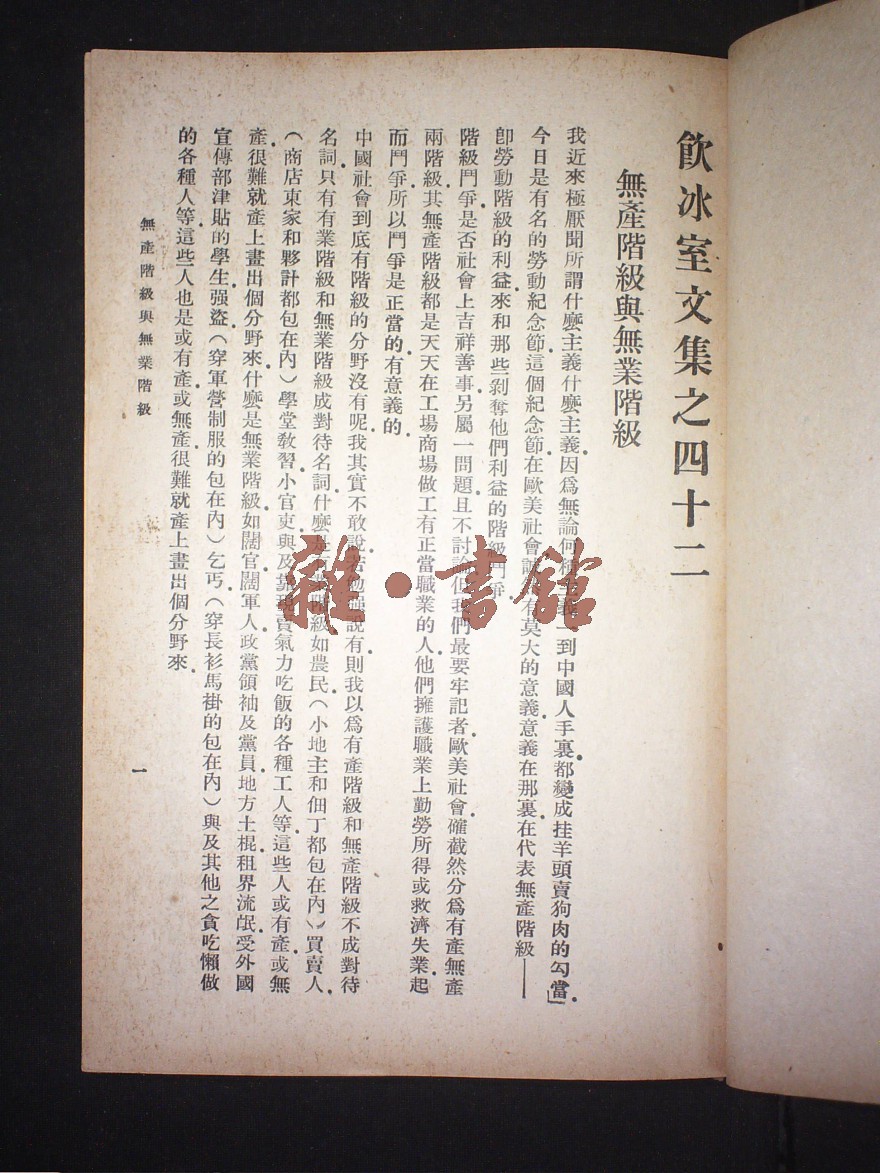 飲冰室文集之四十二
無產階級與無業階級
我近來極厭聞所謂什麽主義什麽主義因爲無論何種主義一到中國人手裏都變成挂羊頭賣狗肉的勾當」
今日是有名的勞動紀念節這個紀念節在歐美社會誠然有莫大的意義意義在那裏在代表無產階級——
卽勞動階級的利益來和那些剝奪他們利益的階級鬥爭
階級鬥爭是否社會上吉祥善事另屬一問題且不討論但我們最要牢記者歐美社會確截然分爲有產無產
兩階級其無產階級都是天天在工場商場做工有正當職業的人他們擁護職業上勤勞所得或救濟失業起
而鬥爭所以鬥爭是正當的有意義的
中國社會到底有階級的分野沒有呢我其實不敢說若勉强說有則我以爲有產階級和無產階級不成對待
名詞只有有業階級和無業階級成對待名詞什麽是有業階級如農民（小地主和佃丁都包在內）買賣人
（商店東家和夥計都包在內）學堂敎習小官吏與及靠現賣氣力吃飯的各種工人等這些人或有產或無
產很難就產上畫出個分野來什麽是無業階級如闊官闊軍人政黨領袖及黨員地方土棍租界流氓受外國
宣傳部津貼的學生强盜（穿軍營制服的包在內）乞丐（穿長衫馬褂的包在內）與及其他之貪吃懶做
的各種人等這些人也是或有產或無產很難就產上畫出個分野來
無產階級與無業階級
一
雜·書館